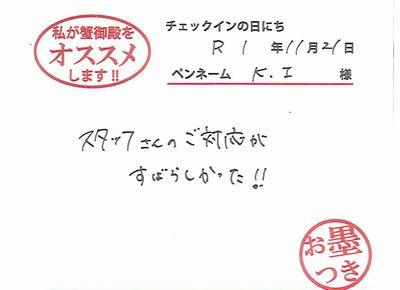 私が蟹御殿を
オススメ
します!!
チェックインの日にち
R 1 年 11月 21日
ペンネーム K.I 様
スタッフさんのご対応が
すばらしかった!!
お墨
つき